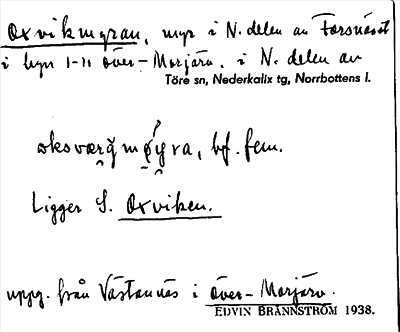 Oxvikmyran, myr i N. delen av Forsnäset
i byn 1-11 Över-Morjärv, i N. delen av
Töre sn, Nederkalix tg, Norrbottens l.
bf. fem.
Ligger S. Oxviken.
uppg. från Västannäs i Över-Morjärv.
EDVIN BRÄNNSTRÖM 1938.